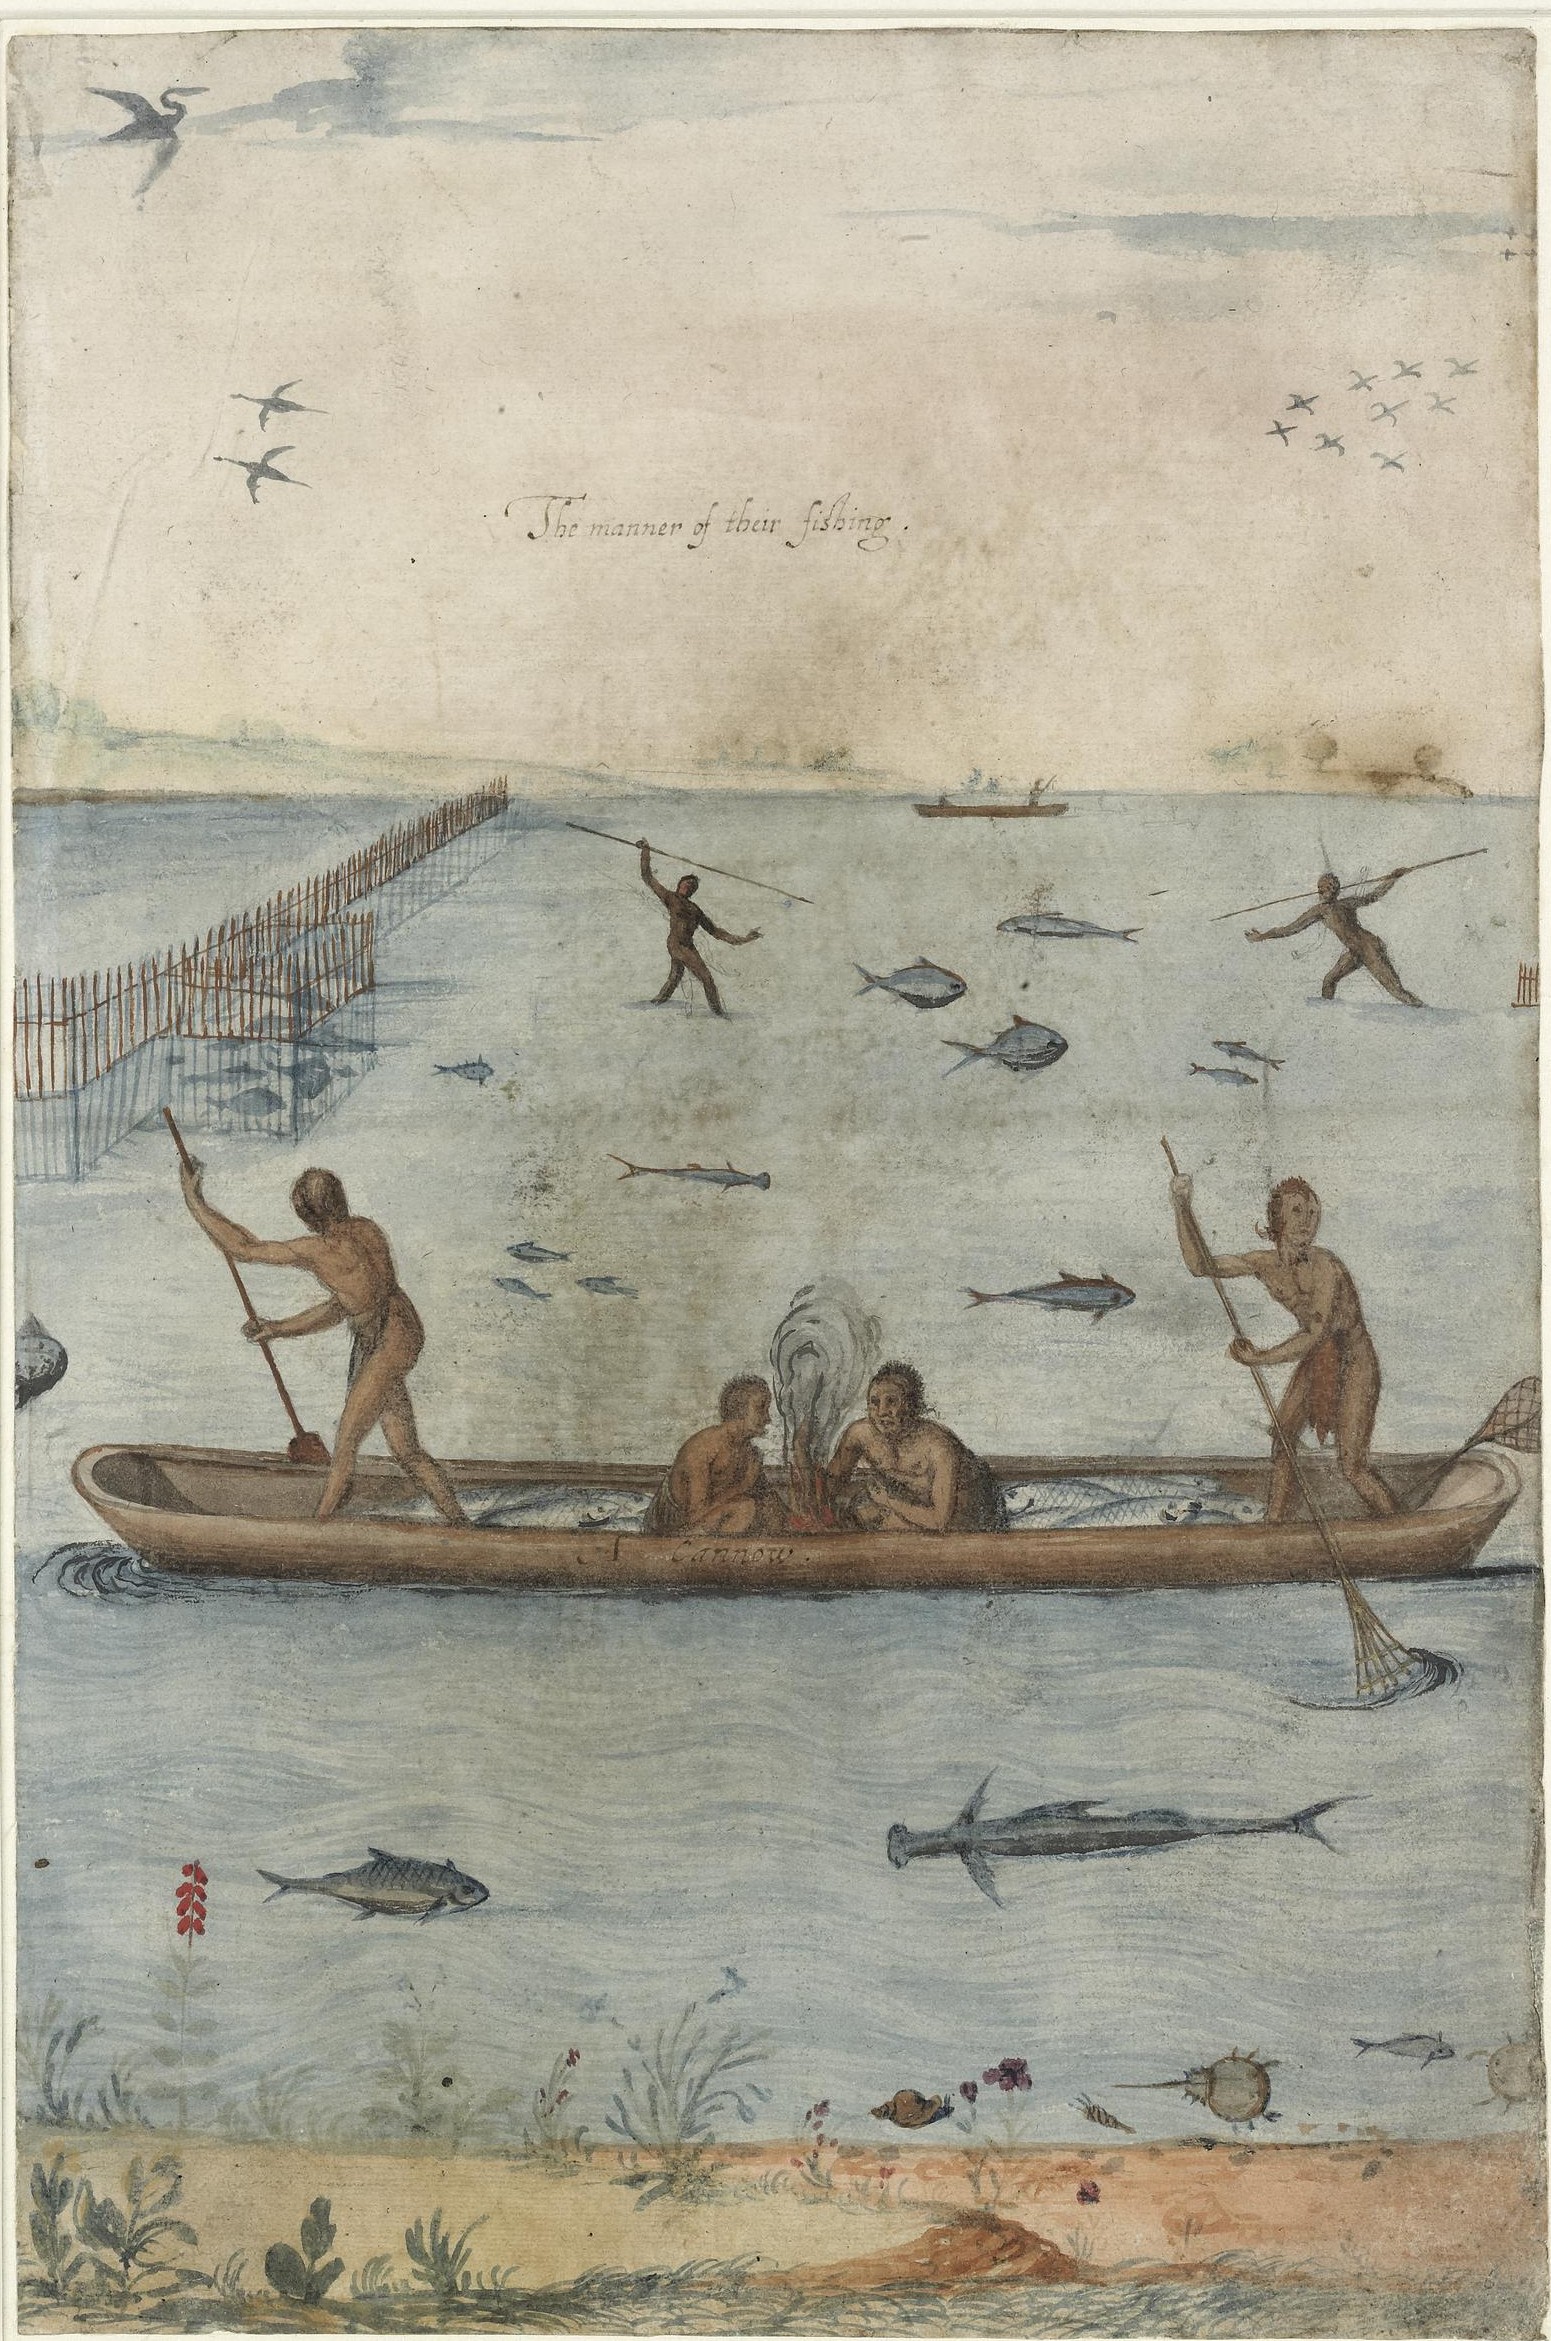 The manner of their fishing.
A Cannow.